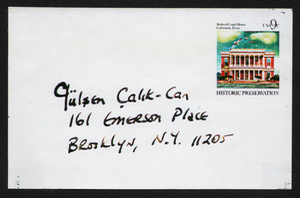 Federal Court House
Galveston, Texas
USA 9c
HISTORIC PRESERVATION
Gülsen Çalık-Can
161 Emerson Place
Brooklyn, N.Y. 11205